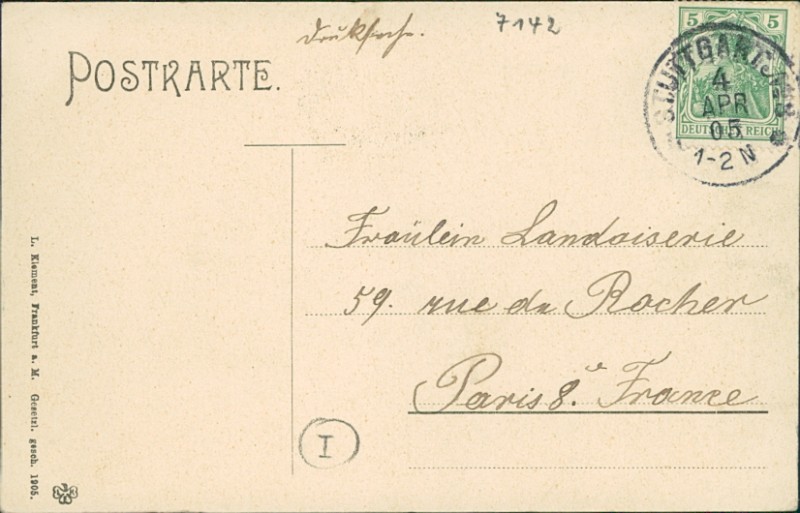 Drucksache.
7142
POSTKARTE.
5 5
DEUTSCHES REICH
STUTTGART
4
APR
05
1-2 N
Fräulein Landoiserie
59. rue du Rocher
Paris 8.e France
I
L. Klement, Frankfurt a. M. Gesetzl. gesch. 1905.